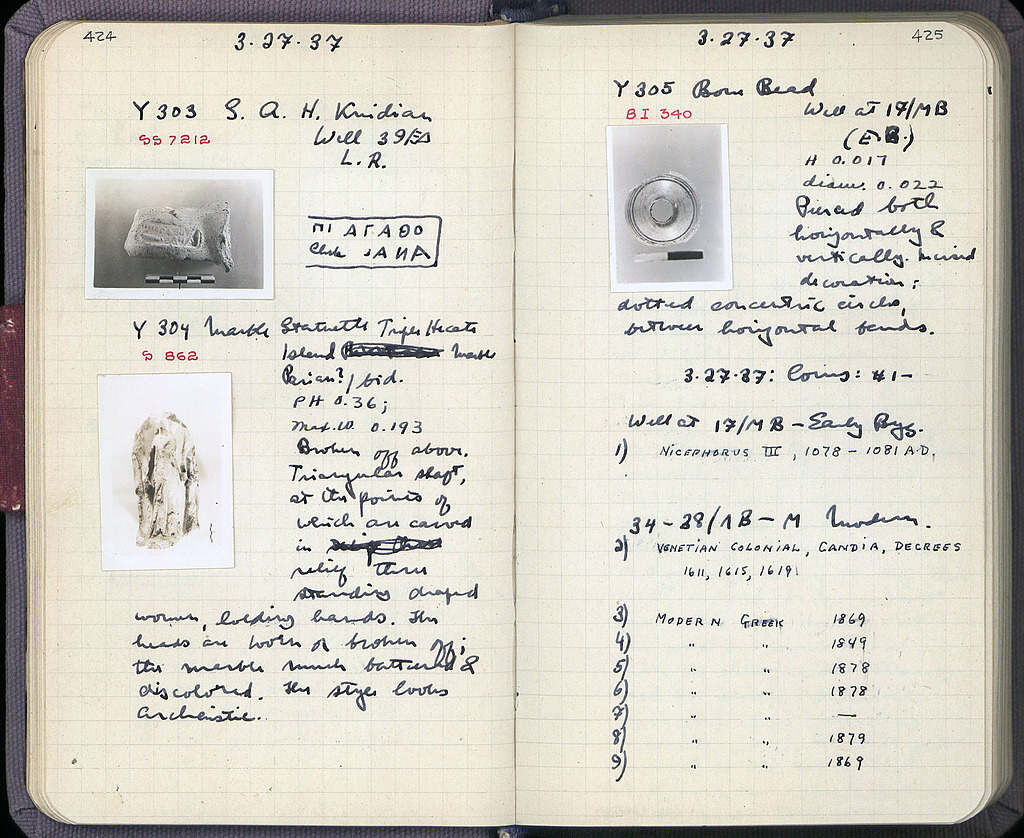 424
3·27·37
Y 303 S. A. H. Knidian
SS 7212
Well 39/
L. R.
ΠΙ ΑΓΑΘΟ
ΑΝΑ
Y 304 Marble Statuette Triple Hecate
S 862
Island Marble
Parian? / bid.
PH 0.36;
max. W. 0.193
Broken off above.
Triangular shaft,
at the points of
which are carved
in
relief three
standing draped
women, holding hands. The
heads are worn or broken off;
the marble much battered &
discolored. The style looks
archaistic.
3·27·37
425
Y 305 Bone Bead
BI 340
Well at 17/MB
(E.B.)
H 0.017
diam. 0.022
Pierced both
horizontally &
vertically. Incised
decoration:
dotted concentric circles,
between horizontal bands.
3·27·37: Coins: #1-
Well at 17/MB - Early Byz.
1) NICEPHORUS III, 1078 - 1081 A.D.
34-38/1B-M Modern.
2) VENETIAN COLONIAL, CANDIA, DECREES
1611, 1615, 1619
3) MODERN GREEK 1869
4) " " 1849
5) " " 1878
6) " " 1878
7) " " —
8) " " 1879
9) " " 1869